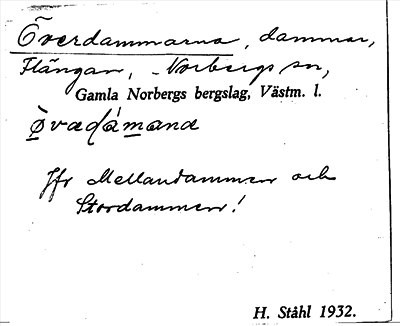 Överdammarna, dammar,
Flängan, Norbergs sn,
Gamla Norbergs bergslag, Västm. l.
Övadámana
Jfr Mellandammen och
Stordammen!
H. Ståhl 1932.